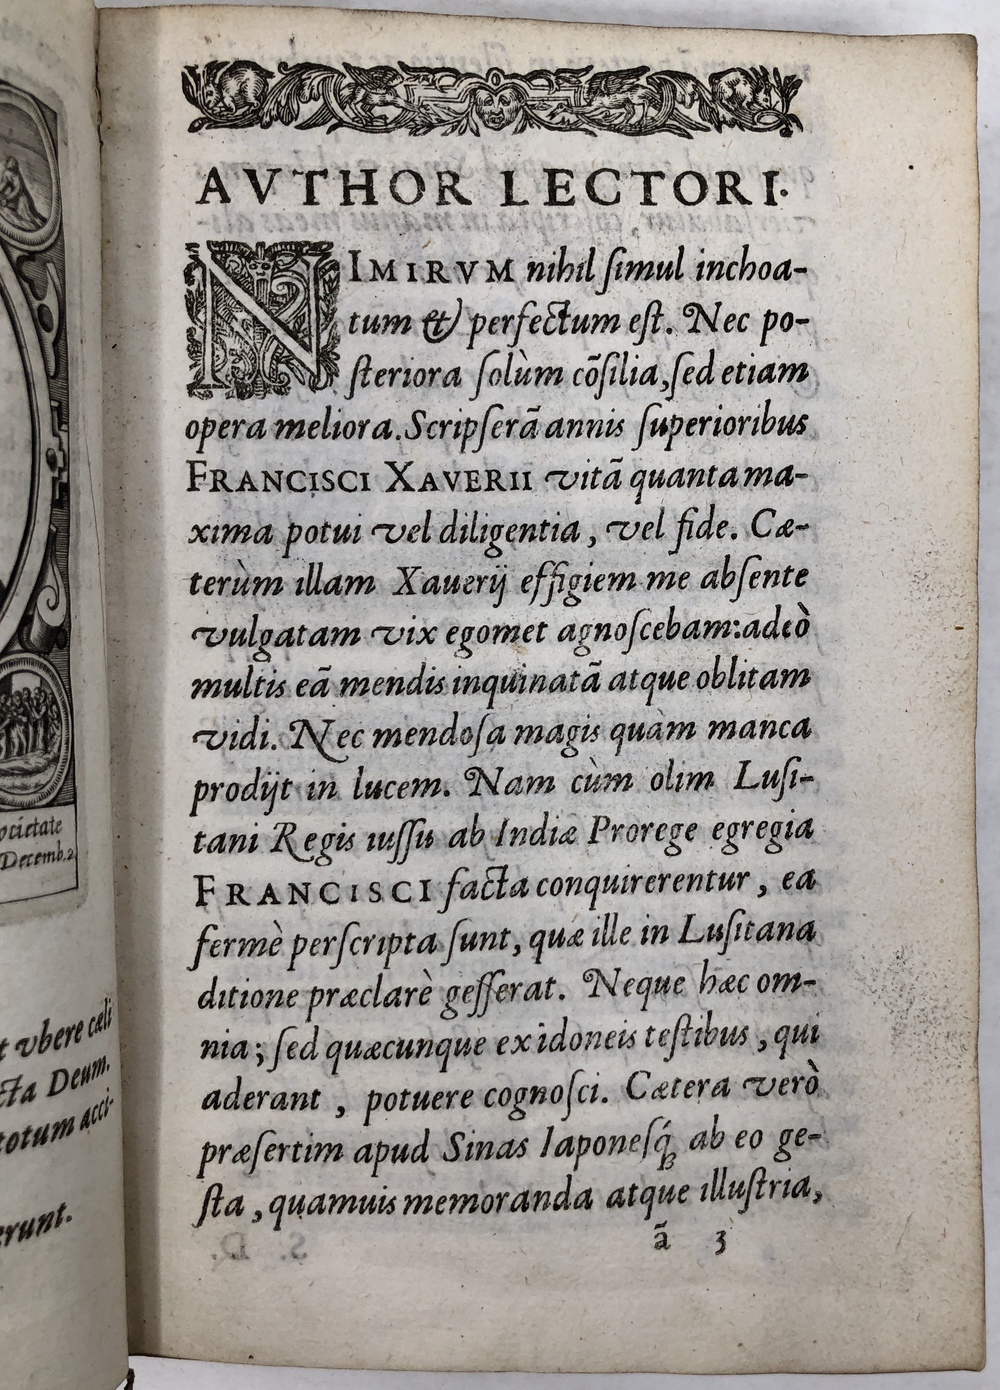 AVTHOR LECTORI.
NIMIRVM nihil ſimul inchoa-
tum & perfectum eſt. Nec po-
ſteriora ſolùm cõſilia, ſed etiam
opera meliora. Scripſerã annis ſuperioribus
FRANCISCI XAVERII vitã quanta ma-
xima potui vel diligentia, vel fide. Cæ-
terùm illam Xauerij effigiem me abſente
vulgatam vix egomet agnoſcebam: adeò
multis eã mendis inquinatã atque oblitam
vidi. Nec mendoſa magis quàm manca
prodijt in lucem. Nam cùm olim Luſi-
tani Regis iuſſu ab Indiæ Prorege egregia
FRANCISCI facta conquirerentur, ea
fermè perſcripta ſunt, quæ ille in Luſitana
ditione præclarè geſſerat. Neque hæc om-
nia; ſed quæcunque ex idoneis teſtibus, qui
aderant, potuere cognoſci. Cætera verò
præſertim apud Sinas Iaponeſq́; ab eo ge-
ſta, quamuis memoranda atque illuſtria,
ã 3
ocietate
Decemb. 2
t vbere cæli
cta Deum.
totum acci-
erunt.